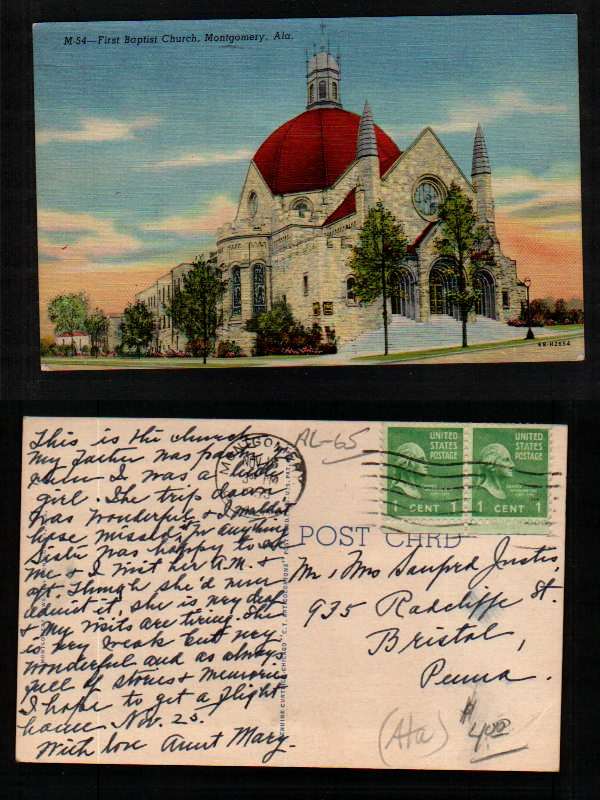 M-54—First Baptist Church, Montgomery, Ala.
6B-H2654
This is the church
my Father was pastor of
when I was a little
girl. The trip down
was wonderful & I would not
have missed it for anything
Sister was happy to see
me & I visit her A.M. &
aft. Though she'd never
admit it, she is very deaf
& my visits are tiring. She
is very weak but very
wonderful and as always
full of stories & memories
I hope to get a flight
home Nov. 25.
With love Aunt Mary.
MONTGOMERY
NOV
AL-65
UNITED STATES POSTAGE
1 CENT 1
UNITED STATES POSTAGE
1 CENT 1
POST CARD
Mr, Mrs Sanford Justis,
935 Radcliffe St.
Bristol,
Penna.
(Ala)
$4.00